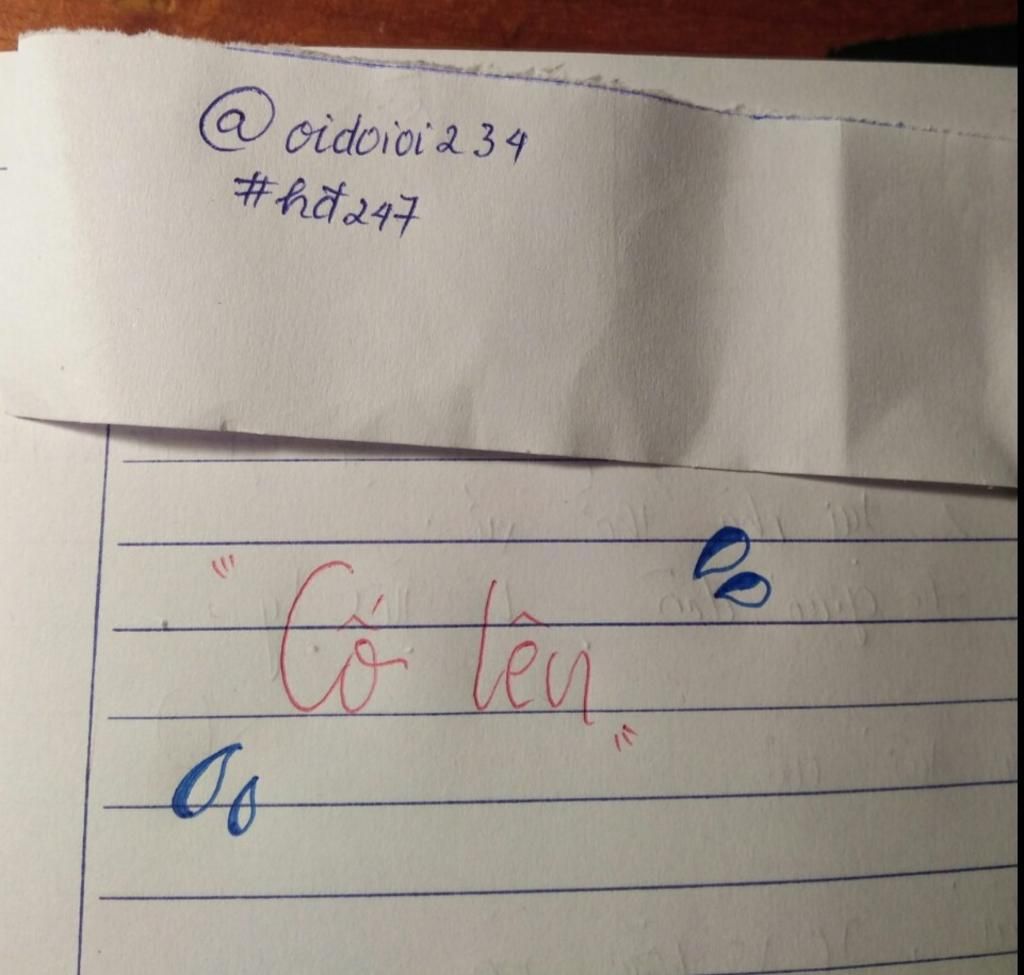 @oidoioi234
#hđ247
"Cố lên"